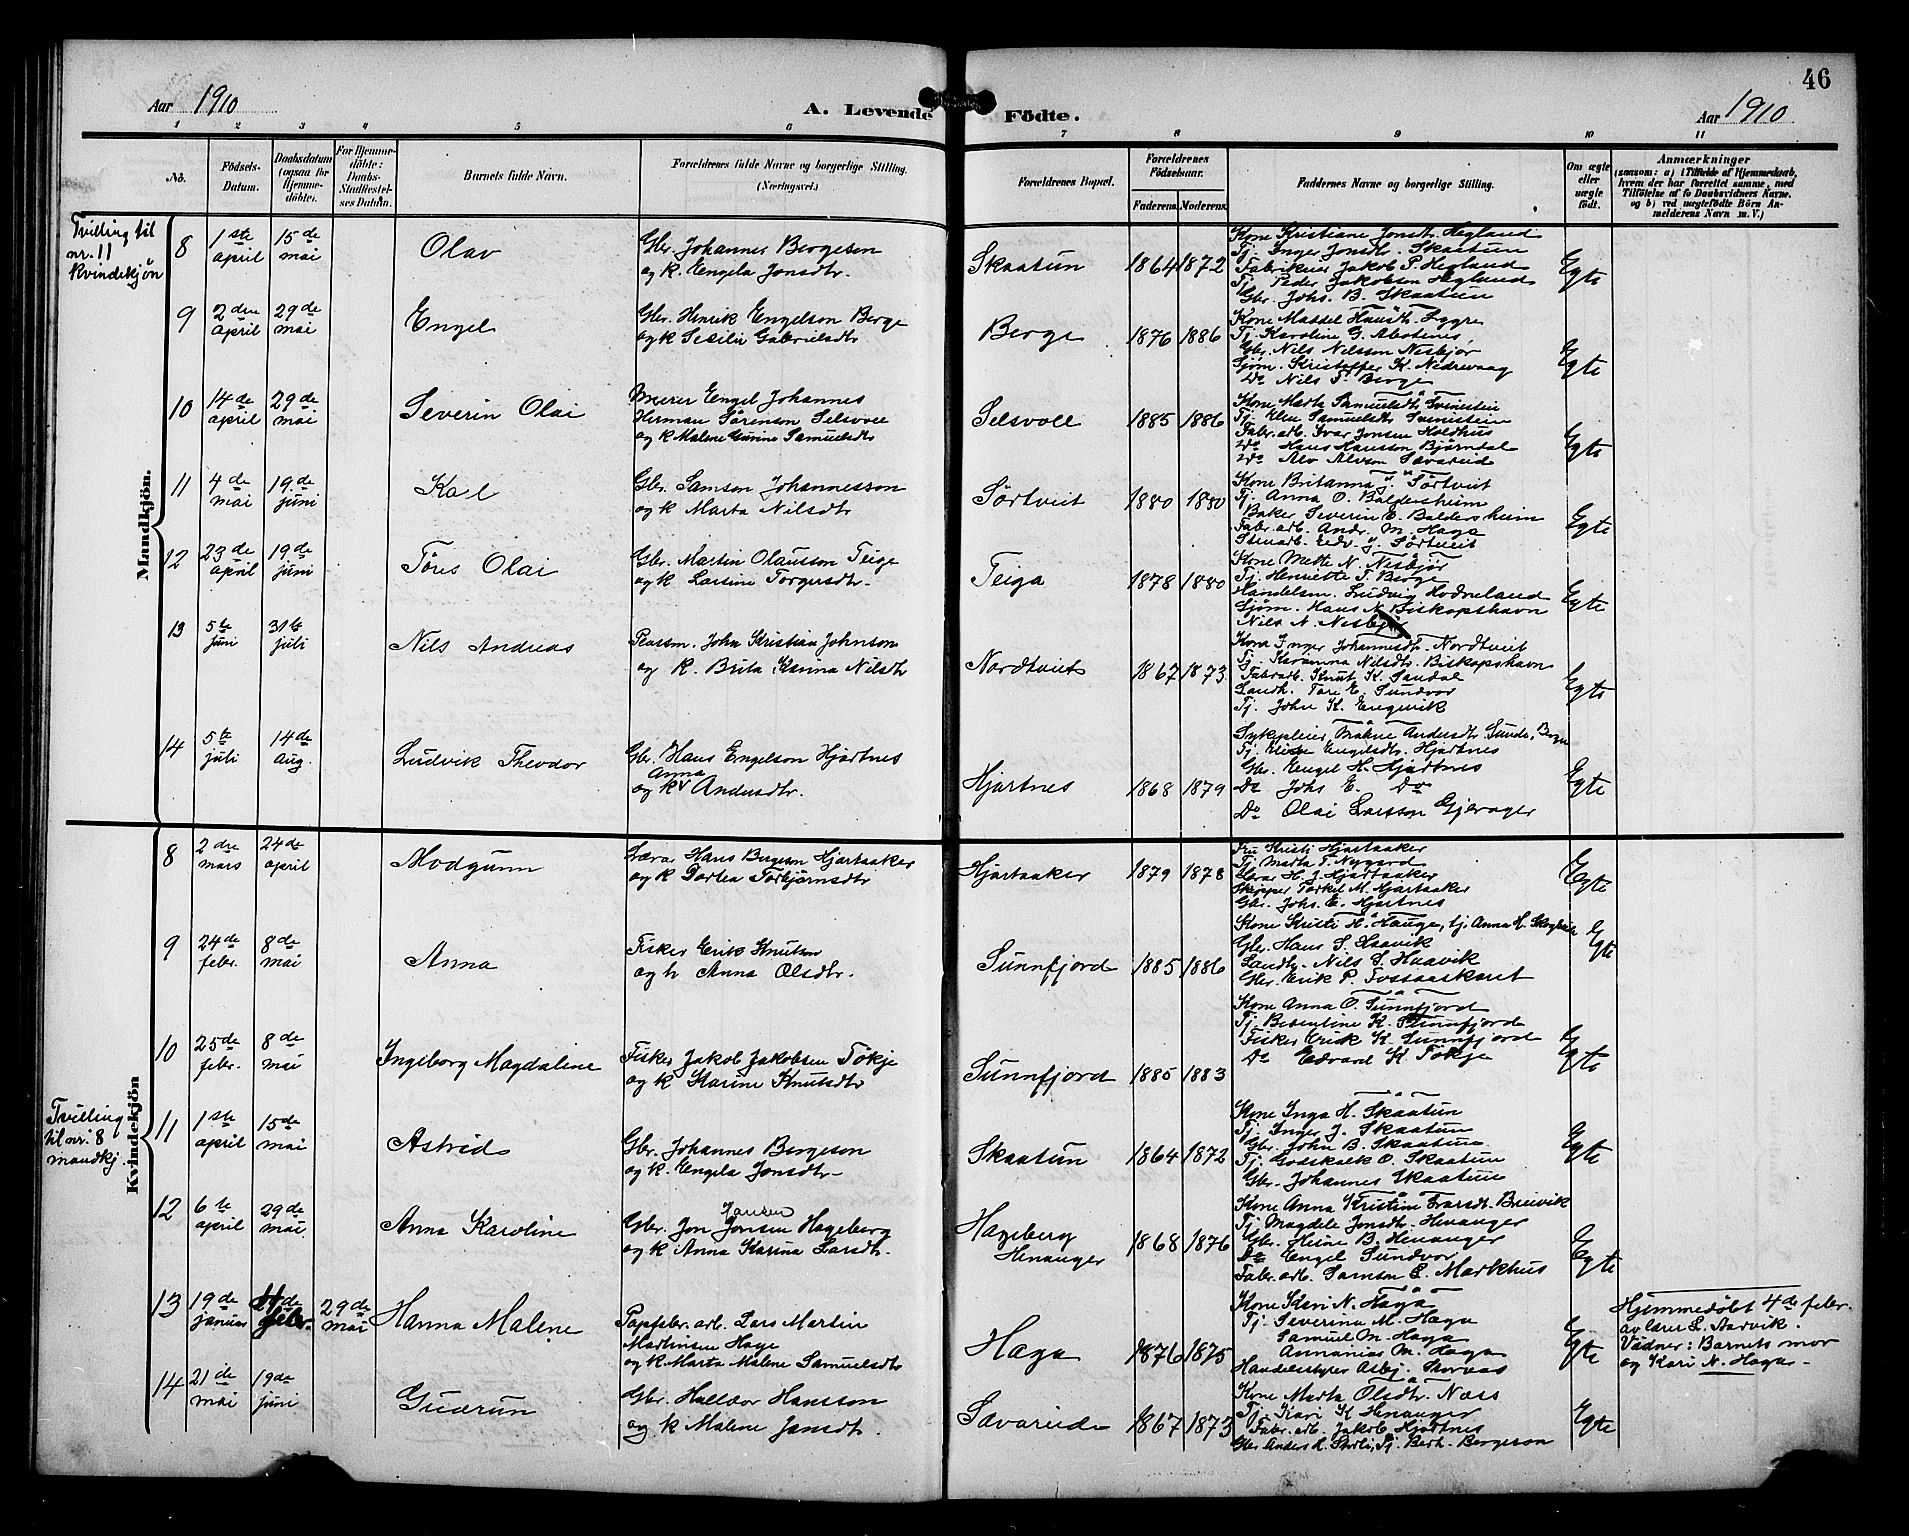 46
Aar 1910
A. Levende Födte.
Aar 1910
1 2 3 4 5 6 7 8 9 10 11
No.
Födsels-Datum.
Daabsdatum (ogsaa for Hjemme-döbte).
For Hjemme-döbte: Daabs-Stadfæstel-ses Datum.
Barnets fulde Navn.
Forældrenes fulde Navne og borgerlige Stilling. (Næringsvei.)
Forældrenes Bopæl.
Forældrenes Födselsaar.
Faderens. Moderens.
Faddernes Navne og borgerlige Stilling.
Om ægte eller uægte födt.
Anmærkninger
(saasom: a) i Tilfælde af Hjemmedaab,
hvem der har forrettet samme, med
Tilföielse af to Daabsvidners Navne,
og b) ved uægtefödte Börn An-
melderens Navn m. V.)
Mandkjön.
Tvilling til
nr. 11
Kvindekjøn
8 1ste april 15de mai Olav
Gbr. Johannes Bergeson
og k. Engela Jonsdtr.
Skaatun 1864 1872
Kone Kristiane Jonsdtr. Hegland
Tj. Inger Jonsdtr. Skaatun
Fabrikeier Jakob P. Hegland
Tj. Peder Jakobson Hegland
Gbr. Johs. B. Skaatun
Egte
9 2den april 29de mai Engel
Gbr. Henrik Engelson Berge
og k Sesilie Gabrielsdtr
Berge 1876 1886
Kone Maddel Hansdtr.
Tj. Karoline G.
Gbr. Nils Nilsson Nesbjør
Sjøm. Kristoffer K. Nedrevaag
Do Nils T. Berge
Egte
10 14de april 29de mai Severin Olai
Murer Engel Johannes
Herman Sørenson Selsvoll
og k Malene Gurine Samuelsdtr
Selsvoll 1885 1886
Kone Marta Samuelsdtr. Svinestein
Tj. Elen Samuelsdtr Svinestein
Fabr.arb. Ivar Jonsen Holdhus
Do Hans Hansson Bjørndal
Do Alv Alvson Sævareid
Egte
11 4de mai 19de juni Kal
Gbr. Samson Johannesson
og k Marta Nilsdtr
Sørtveit 1880 1880
Kone Britanna J. Sørtveit
Tj. Anna O. Baldersheim
Baker Severin O. Baldersheim
Fabr. arb. Andr. M. Haga
Stenarb. Edv. J. Sørtveit
Egte
12 23de april 19de juni Tøres Olai
Gbr. Martin Olausson Teige
og k Larsine Torgersdtr.
Teiga 1878 1880
Kone Mette N. Nesbjør
Tj. Henriette T. Berge
Handelsm. Ludvig Hodneland
Sjøm. Hans N Biskopshavn
Nils N. Nesbjør
Egte
13 5te juni 31te juli Nils Andreas
Plassm. John Kristian Johnson
og k. Brita Karina Nilsdtr
Nordtveit 1867 1873
Kona Inger Johannesdtr. Nordtveit
Tj. Karanna Nilsdtr. Biskopshavn
Fabrarb. Knut K. Sandal
Landh. Tore E. Sundvor
Tj. John K. Engevik
Egte
14 5te juli 14de aug. Ludvik Theodor
Gbr. Hans Engelson Hjartnes
og k Anna Andersdtr.
Hjartnes 1868 1879
Sykepleier Malene Andersdtr. Sunde, Bergen
Tj. Elise Engelsdtr. Hjartnes
Gbr. Engel H. Hjartnes
Do Johs E. Do
Do Olai Larsson Gjerager
Egte
Kvindekjön
8 2dre mars 24de april Modgunn
Lærar Hans Bergeson Hjartaaker
og k Dortea Torbjørnsdtr
Hjartaaker 1879 1878
Fru Kristi Hjartaaker
Tj. Marta T. Nygard
Lærar H. J. Hjartaaker
Skipper Torkel M. Hjartaaker
Gbr. Johs. E. Hjartnes
Egte
9 24de febr. 8de mai Anna
Fisker Erik Knutsen
og k Anna Olsdtr.
Sunnfjord 1885 1886
Kone Kristi H. Hauge, tj. Anna H.
Gbr. Hans S. Haavik
Landh. Nils S. Haavik
Gbr. Erik P. Fossaaskaret
Egte
10 25de febr. 8de mai Ingeborg Magdalene
Fisker Jakob Jakobsen Tøkje
og k Karine Knutsdtr
Sunnfjord 1885 1883
Kone Anna O. Sunnfjord
Tj. Besentine K. Sunnfjord
Fisker Erik K. Sunnfjord
Do Edvard K. Tøkje
Egte
Tvilling
til nr. 8
mandkj.
11 1ste april 15de mai Astrid
Gbr. Johannes Bergeson
og k. Engela Jonsdtr.
Skaatun 1864 1872
Kone Inga H. Skaatun
Tj. Inger J. Skaatun
Gbr. John B. Skaatun
Tj. Godskalk O. Skaatun
Gbr. Johannes Skaatun
Egte
12 6te april 29de mai Anna Karoline
Jansen
Gbr. Jon Jonsen Hageberg
og k Anna Karina Larsdtr.
Hageberg
Henanger
1868 1876
Kone Anna Kristine Ivarsdtr. Breivik
Tj. Magdele Jonsdtr. Henanger
Gbr. Heine B. Henanger
Do Engel Sundvor
Fabr. arb. Samson L. Markhus
Egte
13 19de januar 4de febr. 29de mai Hanna Malene
Papfabr. arb. Lars Martin
Martinsen Haga
og k. Marta Malene Samuelsdtr
Haga 1876 1875
Kone Kari N. Haga
Tj. Severina M. Haga
Samuel M. Haga
Annanias M. Haga
Handelsstyrer Asbj. Storaas
Egte
Hjemmedøbt 4de febr.
av lærer L. Aarvik.
Vidner: Barnets mor
og Kari N. Haga.
14 21de mai 19de juni Gudrun
Gbr. Halldor Hansson
og k Malene Jansdtr.
Sævareide 1867 1873
Kone Marta Olsdtr. Næss
Tj. Kari K Henanger
Fabr. arb. Jakob Hjartnes
Gbr. Anders L. Tj. Berh. Bergeson
Egte